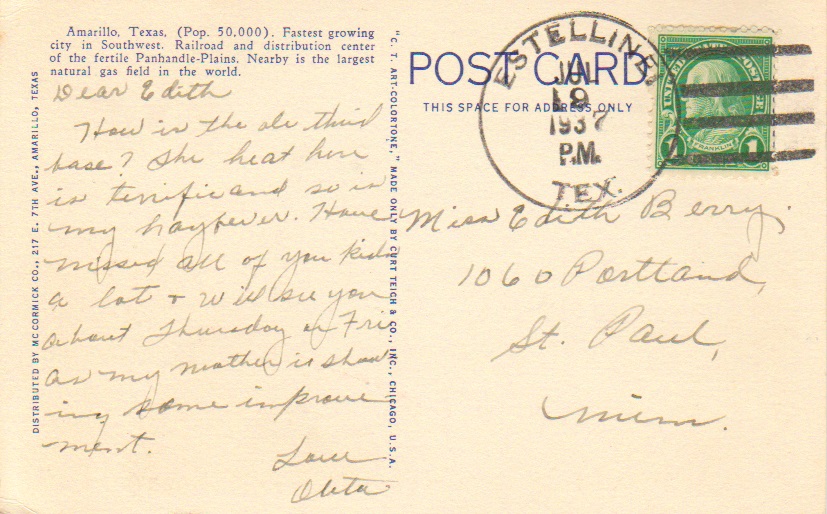 Amarillo, Texas, (Pop. 50,000). Fastest growing
city in Southwest. Railroad and distribution center
of the fertile Panhandle-Plains. Nearby is the largest
natural gas field in the world.
Dear Edith
How is the ole third
base? The heat here
is terrific and so is
my hayfever. Have
missed all of you kids
a lot + will see you
about Thursday or Fri
as my mother is show
ing some improve
ment.
Love
DISTRIBUTED BY MCCORMICK CO., 217 E. 7TH AVE., AMARILLO, TEXAS
"C. T. ART-COLORTONE," MADE ONLY BY CURT TEICH & CO., INC., CHICAGO, U.S.A.
POST CARD
THIS SPACE FOR ADDRESS ONLY
ESTELLINE,
JUL
1937
P.M.
TEX.
UNITED STATES POSTAGE
FRANKLIN
1 1
Miss Edith Berry,
1060 Portland,
St. Paul,
Minn.